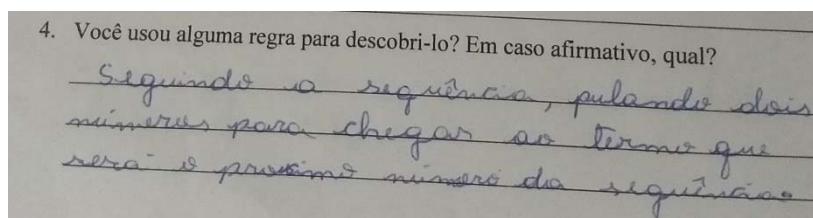 4. Você usou alguma regra para descobri-lo? Em caso afirmativo, qual?
Seguindo a sequência, pulando dois
números para chegar ao termo que
será o proximo número da sequência